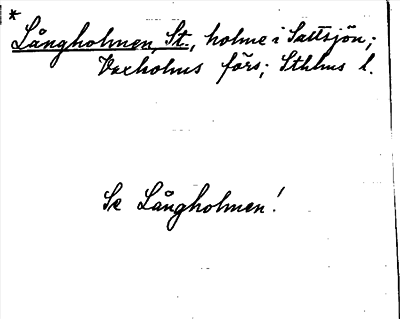 *
Långholmen, St., holme i Saltsjön;
Vaxholms förs; Sthlms l.
Se Långholmen!